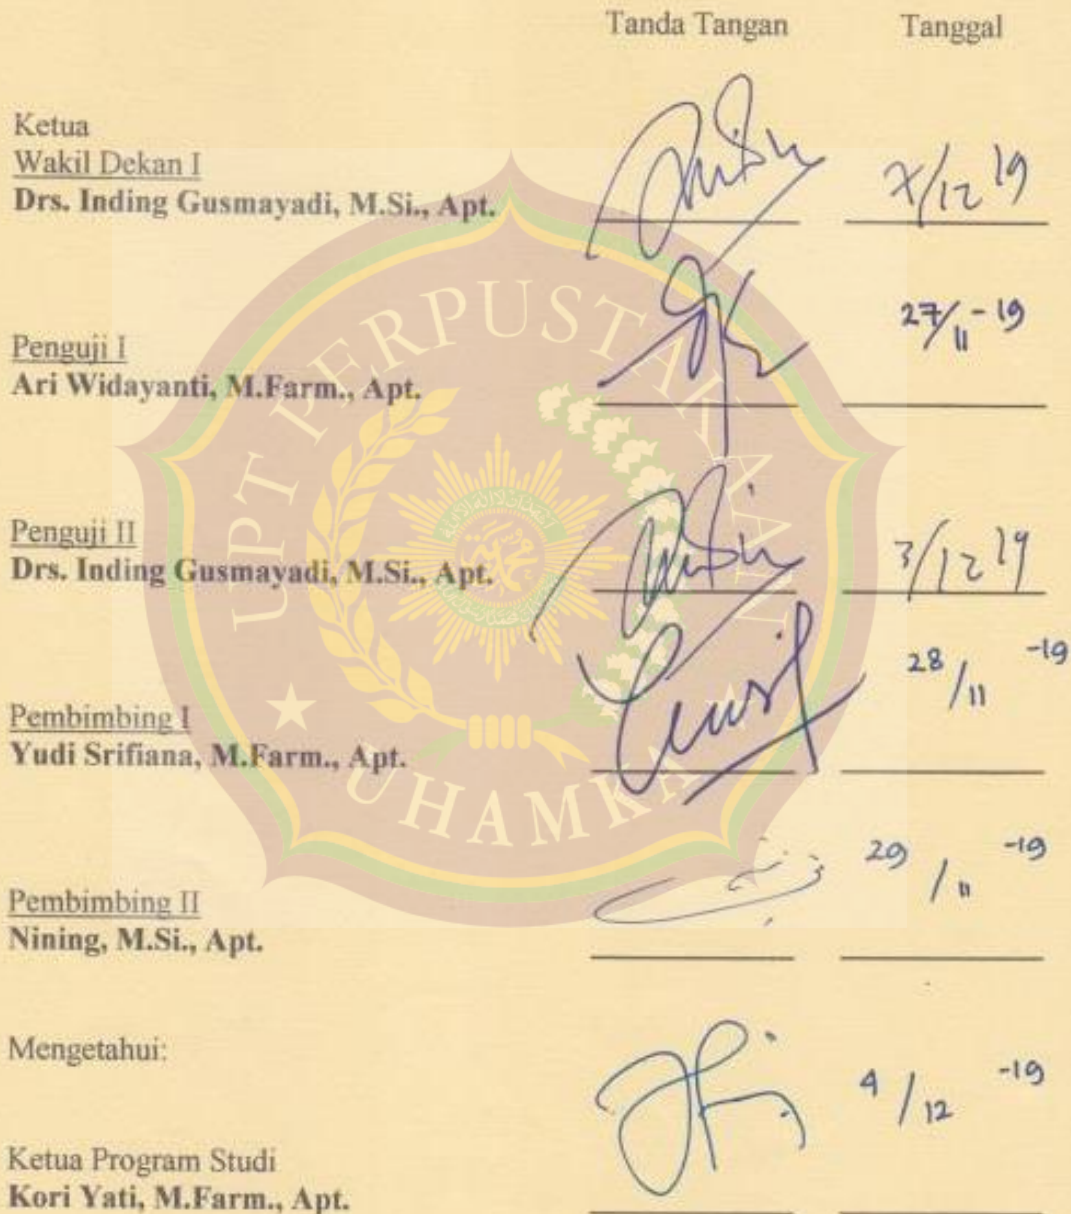 Tanda Tangan Tanggal
Ketua
Wakil Dekan I
Drs. Inding Gusmayadi, M.Si., Apt.
7/12 19
Penguji I
Ari Widayanti, M.Farm., Apt.
27/11-19
Penguji II
Drs. Inding Gusmayadi, M.Si., Apt.
3/12 19
Pembimbing I
Yudi Srifiana, M.Farm., Apt.
28/11 -19
Pembimbing II
Nining, M.Si., Apt.
29/11 -19
Mengetahui:
Ketua Program Studi
Kori Yati, M.Farm., Apt.
4/12 -19
UPT PERPUSTAKAAN
UHAMKA